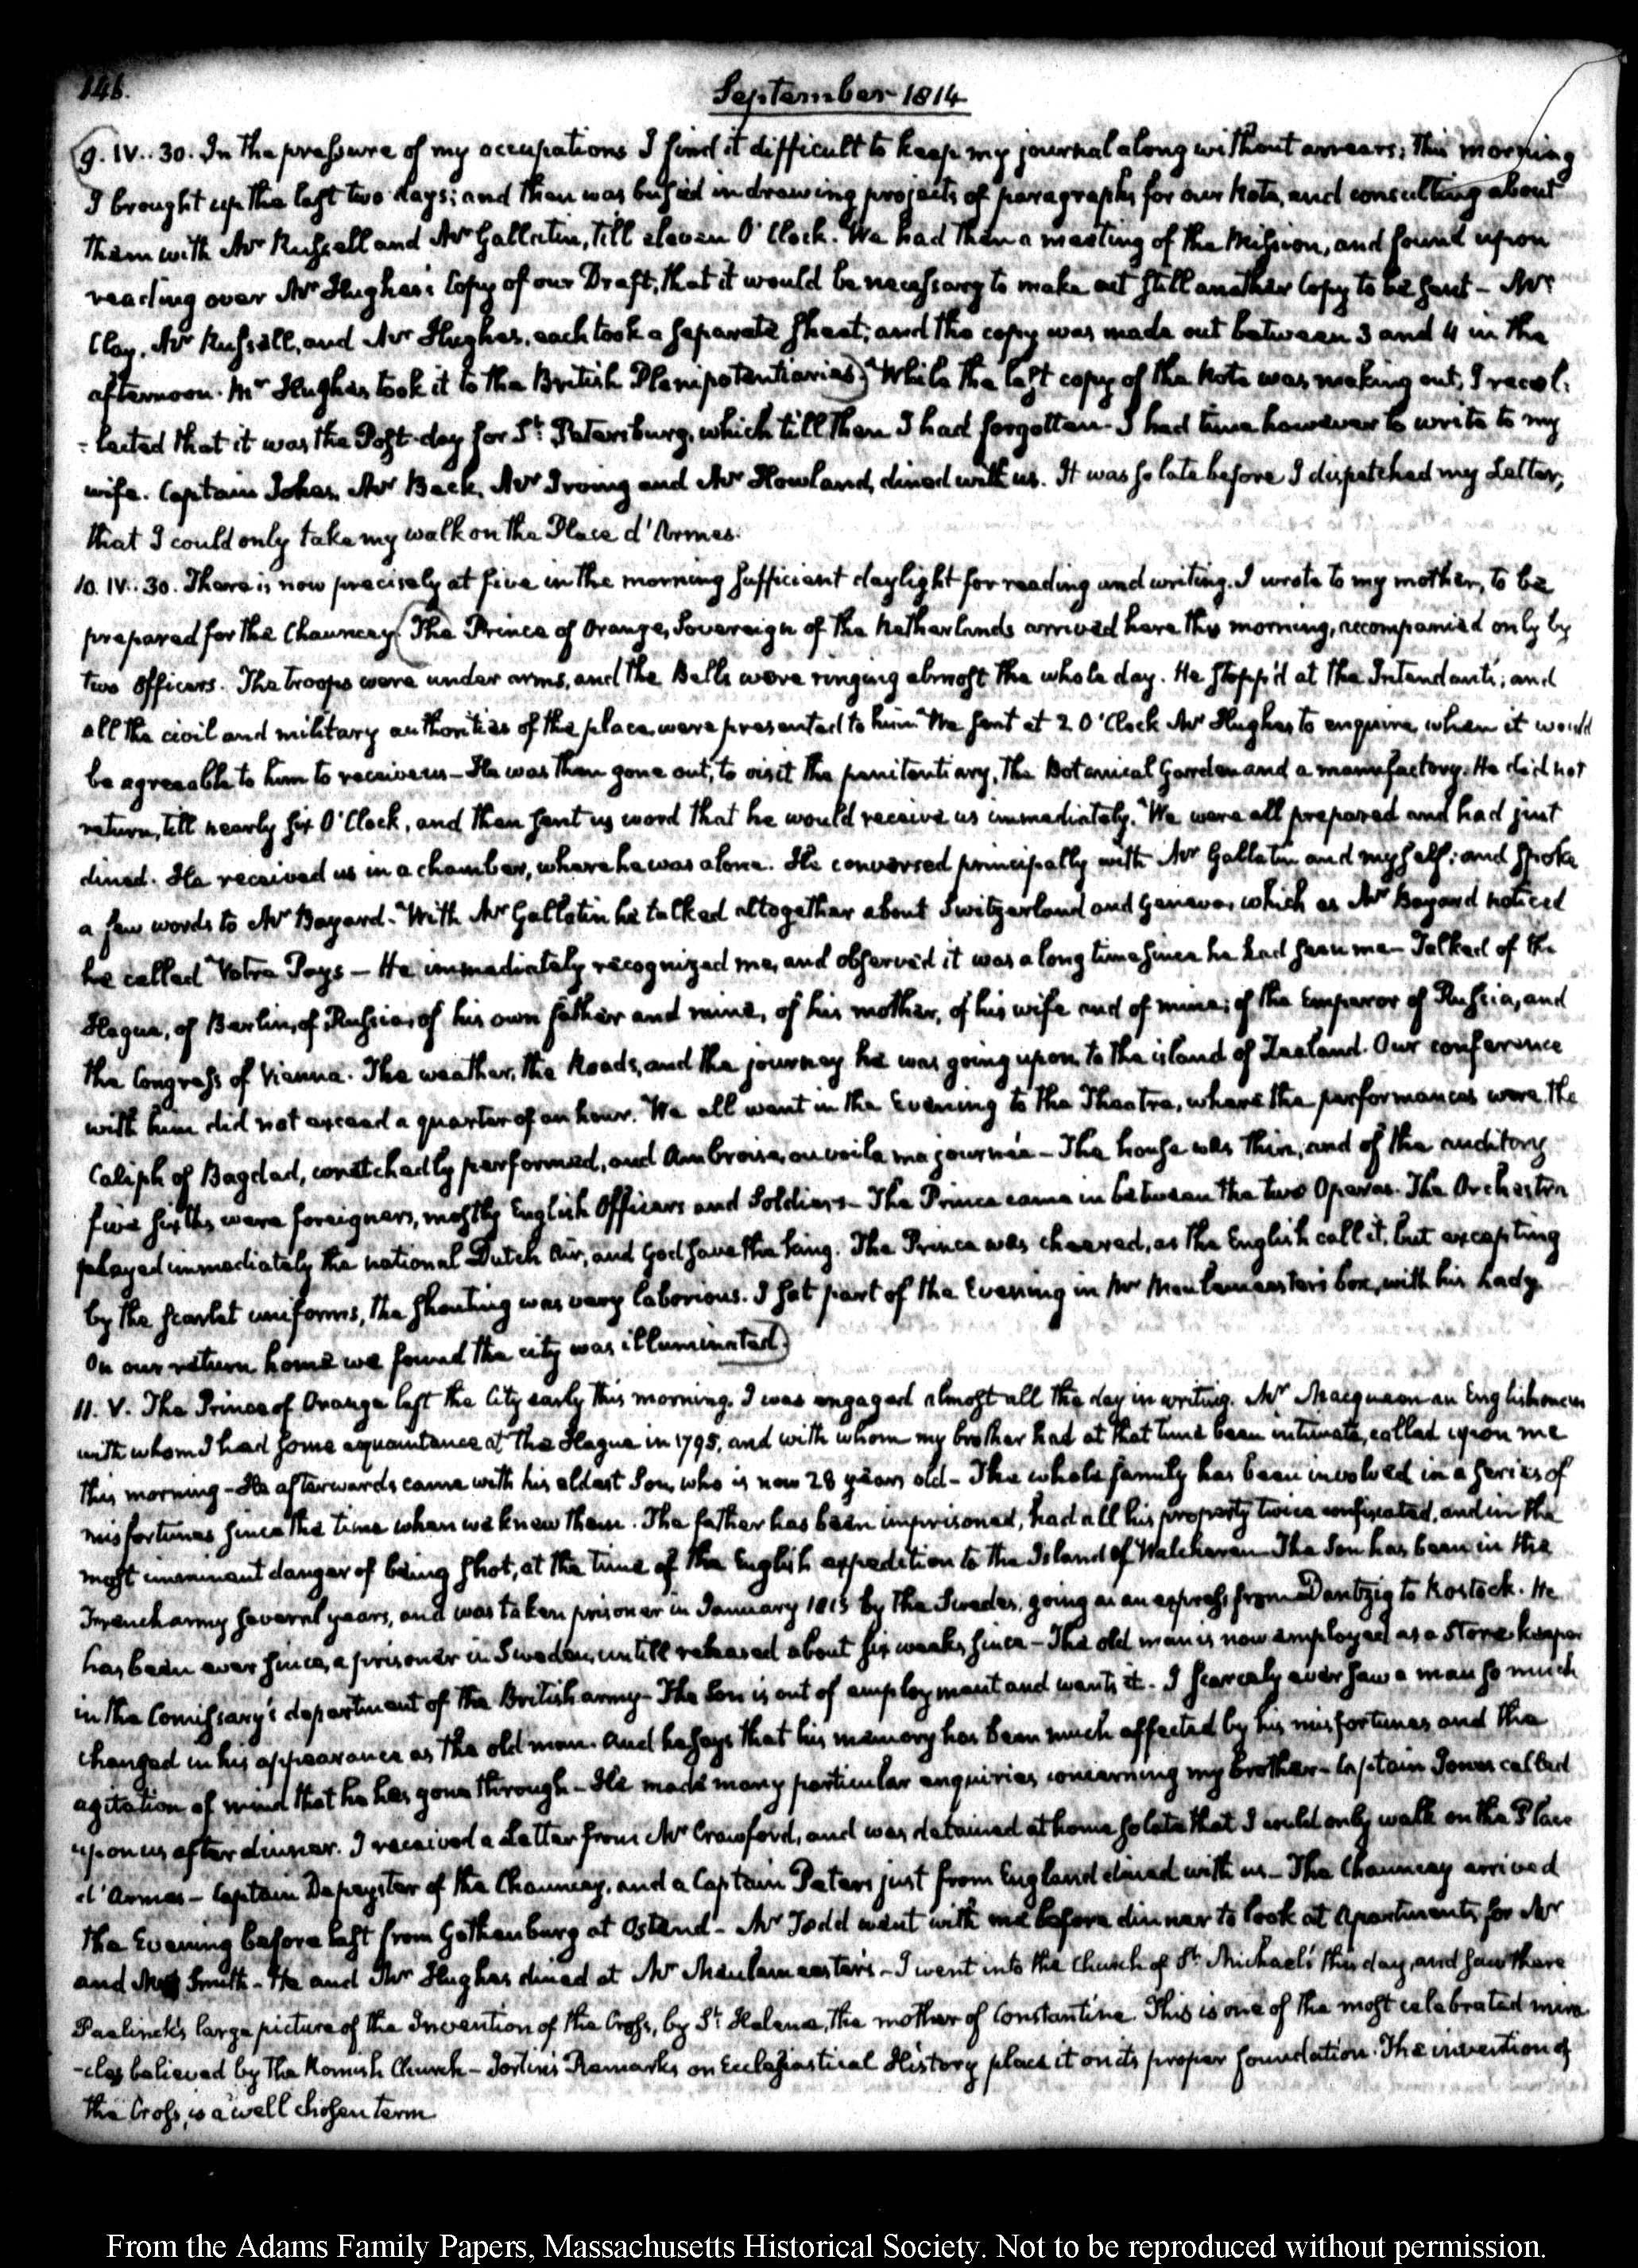 146.
September 1814
9. IV.. 30. In the pressure of my occupations I find it difficult to keep my journal along without arrears; this morning
I brought up the last two days; and then was busied in drawing projects of paragraphs for our Note, and consulting about
them with Mr Russell and Mr Gallatin, till eleven O'Clock. We had then a meeting of the Mission, and found upon
reading over Mr Hughes's Copy of our Draft, that it would be necessary to make out still another Copy to be sent – Mr
Clay, Mr Russell, and Mr Hughes, each took a separate sheet; and the copy was made out between 3 and 4 in the
afternoon. Mr Hughes took it to the British Plenipotentiaries) While the last copy of the Note was making out, I recol-
-lected that it was the Post-day for St. Petersburg, which till then I had forgotten. I had time however to write to my
wife. Captain Jokes, Mr Beck, Mr Irving and Mr Howland, dined with us. It was so late before I dispatched my Letter,
that I could only take my walk on the Place d'Armes.
10. IV.. 30. There is now precisely at five in the morning sufficient daylight for reading and writing. I wrote to my mother, to be
prepared for the Chauncey (The Prince of Orange, Sovereign of the Netherlands arrived here this morning, accompanied only by
two Officers. The troops were under arms, and the Bells were ringing almost the whole day. He stopp'd at the Intendant's; and
all the civil and military authorities of the place, were presented to him. We sent at 2 O'Clock Mr Hughes to enquire, when it would
be agreeable to him to receive us – He was then gone out, to visit the penitentiary, the Botanical Garden and a manufactory. He did not
return, till nearly six O'Clock, and then sent us word that he would receive us immediately. We were all prepared and had just
dined. He received us in a chamber, where he was alone. He conversed principally with Mr Gallatin and myself; and spoke
a few words to Mr Bayard. With Mr Gallatin he talked altogether about Switzerland and Geneva, which as Mr Bayard noticed
he called Votre Pays – He immediately recognized me, and observed it was a long time since he had seen me – Talked of the
Hague, of Berlin, of Russia, of his own father and mine, of his mother, of his wife and of mine; of the Emperor of Russia, and
the Congress of Vienna. The weather, the Roads, and the journey he was going upon to the island of Zealand. Our conference
with him did not exceed a quarter of an hour. We all went in the Evening to the Theatre, where the performances were the
Caliph of Bagdad, wretchedly performed, and Ambroise, ou voila ma journée – The house was thin, and of the auditory
five sixths were foreigners, mostly English Officers and Soldiers – The Prince came in between the two Operas. The Orchestra
played immediately the national Dutch Air, and God save the King. The Prince was cheered, as the English call it, but excepting
by the scarlet uniforms, the shouting was very laborious. I sat part of the Evening in Mr Meulemeester's box, with his Lady.
On our return home we found the city was illuminated)
11. V. The Prince of Orange left the City early this morning. I was engaged almost all the day in writing. Mr Macqueen an Englishman
with whom I had some acquaintance at the Hague in 1795, and with whom my brother had at that time been intimate, called upon me
this morning – He afterwards came with his eldest Son, who is now 28 years old – The whole family has been involved in a series of
misfortunes since the time when we knew them. The father has been imprisoned, had all his property twice confiscated, and in the
most imminent danger of being shot, at the time of the English expedition to the Island of Walcheren – The Son has been in the
French army several years, and was taken prisoner in January 1813 by the Swedes, going as an express from Dantzig to Rostock. He
has been ever since, a prisoner in Sweden, untill released about six weeks since – The old man is now employed as a Store keeper
in the Comissary's department of the British army – The Son is out of employment and wants it. I scarcely ever saw a man so much
changed in his appearance as the old man. And he says that his memory has been much affected by his misfortunes and the
agitation of mind that he has gone through – He made many particular enquiries concerning my brother – Captain Jones called
upon us after dinner. I received a Letter from Mr Crawford, and was detained at home so late that I could only walk on the Place
d'Armes – Captain Depeyster of the Chauncey, and a Captain Peters just from England dined with us – The Chauncey arrived
the Evening before last from Gothenburg at Ostend – Mr Todd went with me before dinner to look at Apartments for Mr
and Mrs Smith – He and Mr Hughes dined at Mr Meulemeester's – I went into the Church of St. Michael's this day, and saw there
Paelinck's large picture of the Invention of the Cross, by St. Helena, the mother of Constantine. This is one of the most celebrated mira-
-cles believed by the Romish Church – Jortin's Remarks on Ecclesiastical History place it on its proper foundation. The invention of
the Cross, is a well chosen term
From the Adams Family Papers, Massachusetts Historical Society. Not to be reproduced without permission.